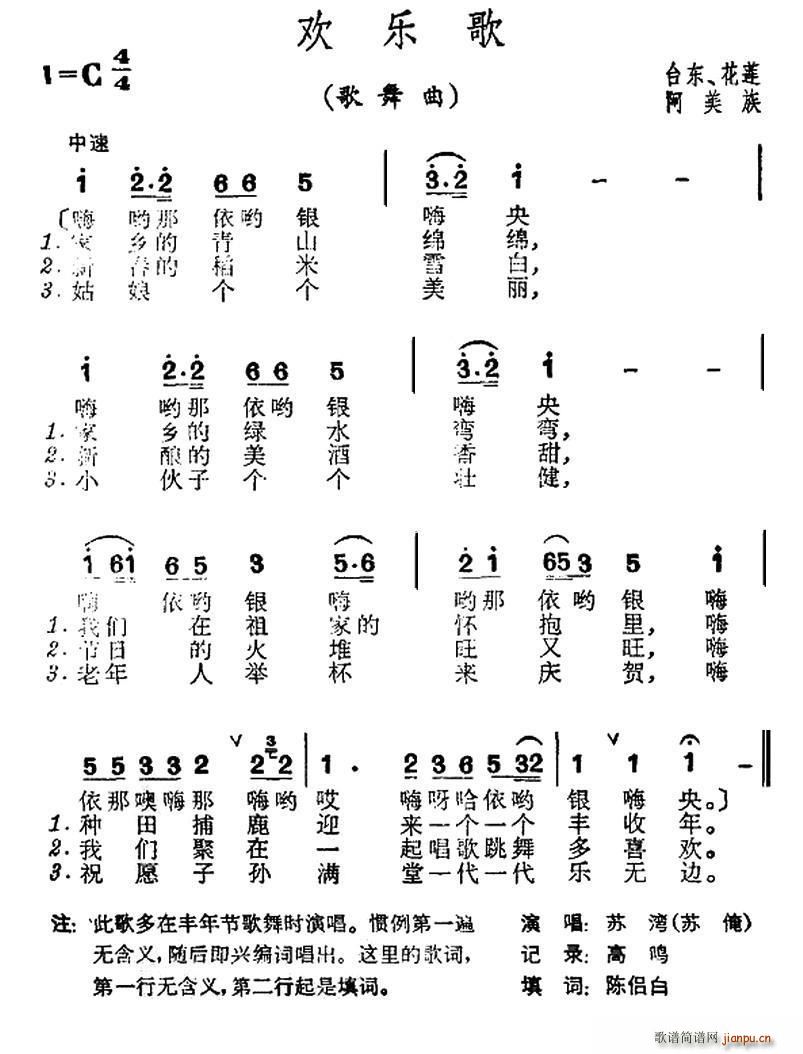 欢乐歌
1=C 4/4
(歌舞曲)
台东、花莲
阿美族
中速
i 2·2 66 5 | 3·2 i - - |
〔嗨 哟那 依哟 银 嗨 央
1.家 乡的 青 山 绵 绵,
2.新 春的 稻 米 雪 白,
3.姑 娘 个 个 美 丽,
i 2·2 66 5 | 3·2 i - - |
嗨 哟那 依哟 银 嗨 央
1.家 乡的 绿 水 弯 弯,
2.新 酿的 美 酒 香 甜,
3.小 伙子 个 个 壮 健,
i 6i 65 3 5·6 | 2 i 653 5 i |
嗨 依哟 银 嗨 哟那 依哟 银 嗨
1.我们 在 祖 家的 怀 抱 里,嗨
2.节日 的 火 堆 旺 又 旺,嗨
3.老年 人 举 杯 来 庆 贺,嗨
55 33 2 ∨ 3 22 | 1· 2 36 532 | 1 ∨ 1 1 - ‖
依那 噢嗨 那 嗨哟 哎 嗨 呀哈 依哟 银 嗨 央。〕
1.种 田 捕 鹿 迎 来 一个 一个 丰 收 年。
2.我 们 聚 在 一 起 唱歌 跳舞 多 喜 欢。
3.祝 愿 子 孙 满 堂 一代 一代 乐 无 边。
注:此歌多在丰年节歌舞时演唱。惯例第一遍
无含义,随后即兴编词唱出。这里的歌词,
第一行无含义,第二行起是填词。
演 唱:苏 湾(苏 俺)
记 录:高 鸣
填 词:陈侣白
歌谱简谱网
jianpu.cn